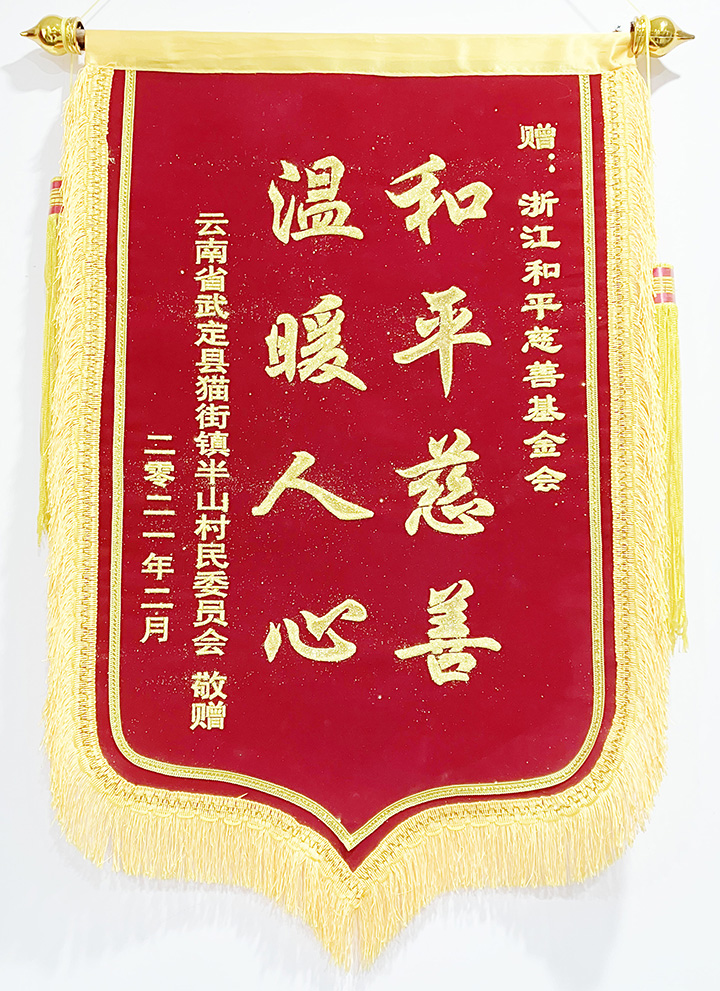 赠：浙江和平慈善基金会
和平慈善
温暖人心
云南省武定县猫街镇半山村民委员会 敬赠
二零二一年二月